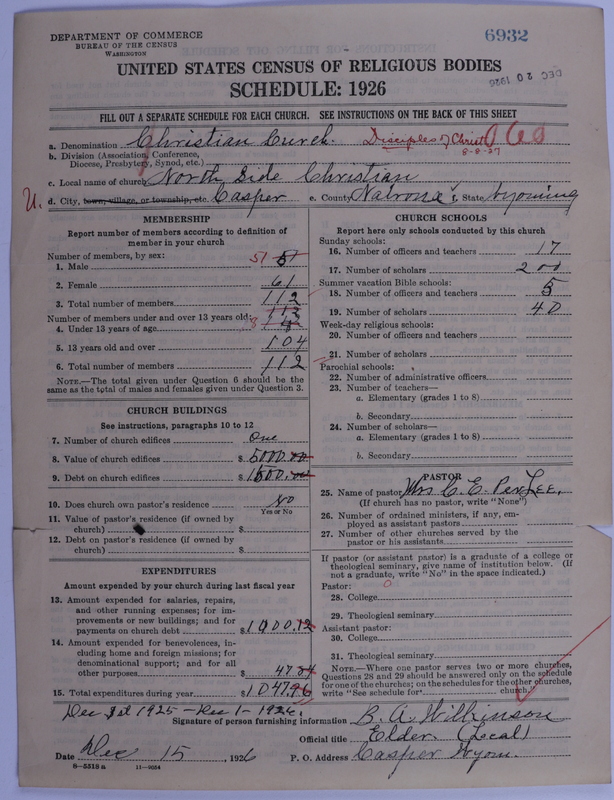 DEPARTMENT OF COMMERCE
BUREAU OF THE CENSUS
WASHINGTON
6932
DEC 20 1926
UNITED STATES CENSUS OF RELIGIOUS BODIES
SCHEDULE: 1926
FILL OUT A SEPARATE SCHEDULE FOR EACH CHURCH. SEE INSTRUCTIONS ON THE BACK OF THIS SHEET
a. Denomination Christian Church. Disciples of Christ
8-8-27
b. Division (Association, Conference,
Diocese, Presbytery, Synod, etc.)
c. Local name of church North Side Christian
U. d. City, town, village, or township, etc. Casper e. County Natrona f. State Wyoming
MEMBERSHIP
Report number of members according to definition of
member in your church
Number of members, by sex:
1. Male 51
2. Female 61
3. Total number of members 112
Number of members under and over 13 years old: 112
4. Under 13 years of age 8
5. 13 years old and over 104
6. Total number of members 112
NOTE.—The total given under Question 6 should be the
same as the total of males and females given under Question 3.
CHURCH BUILDINGS
See instructions, paragraphs 10 to 12
7. Number of church edifices One
8. Value of church edifices $5000.00
9. Debt on church edifices $1500.00
10. Does church own pastor's residence No
Yes or No
11. Value of pastor's residence (if owned by
church) $
12. Debt on pastor's residence (if owned by
church) $
EXPENDITURES
Amount expended by your church during last fiscal year
13. Amount expended for salaries, repairs,
and other running expenses; for im-
provements or new buildings; and for
payments on church debt $1000.12
14. Amount expended for benevolences, in-
cluding home and foreign missions; for
denominational support; and for all
other purposes 47 84
15. Total expenditures during year $1047.96
CHURCH SCHOOLS
Report here only schools conducted by this church
Sunday schools:
16. Number of officers and teachers 17
17. Number of scholars 200
Summer vacation Bible schools:
18. Number of officers and teachers 5
19. Number of scholars 40
Week-day religious schools:
20. Number of officers and teachers
21. Number of scholars
Parochial schools:
22. Number of administrative officers
23. Number of teachers—
a. Elementary (grades 1 to 8)
b. Secondary
24. Number of scholars—
a. Elementary (grades 1 to 8)
b. Secondary
PASTOR
25. Name of pastor Mrs C. E. Lee.
(If church has no pastor, write "None")
26. Number of ordained ministers, if any, em-
ployed as assistant pastors
27. Number of other churches served by the
pastor or his assistants
If pastor (or assistant pastor) is a graduate of a college or
theological seminary, give name of institution below. (If
not a graduate, write "No" in the space indicated.)
Pastor: 0
28. College
29. Theological seminary
Assistant pastor:
30. College
31. Theological seminary
NOTE.—Where one pastor serves two or more churches,
Questions 28 and 29 should be answered only on the schedule
for one of the churches; on the schedules for the other churches,
write "See schedule for church."
Dec 1st 1925 - Dec 1 - 1926.
Signature of person furnishing information B. A. Wilkinson
Official title Elder (Local)
Date Dec 15, 1926
P. O. Address Casper Wyom.
8—5318 a 11—9054